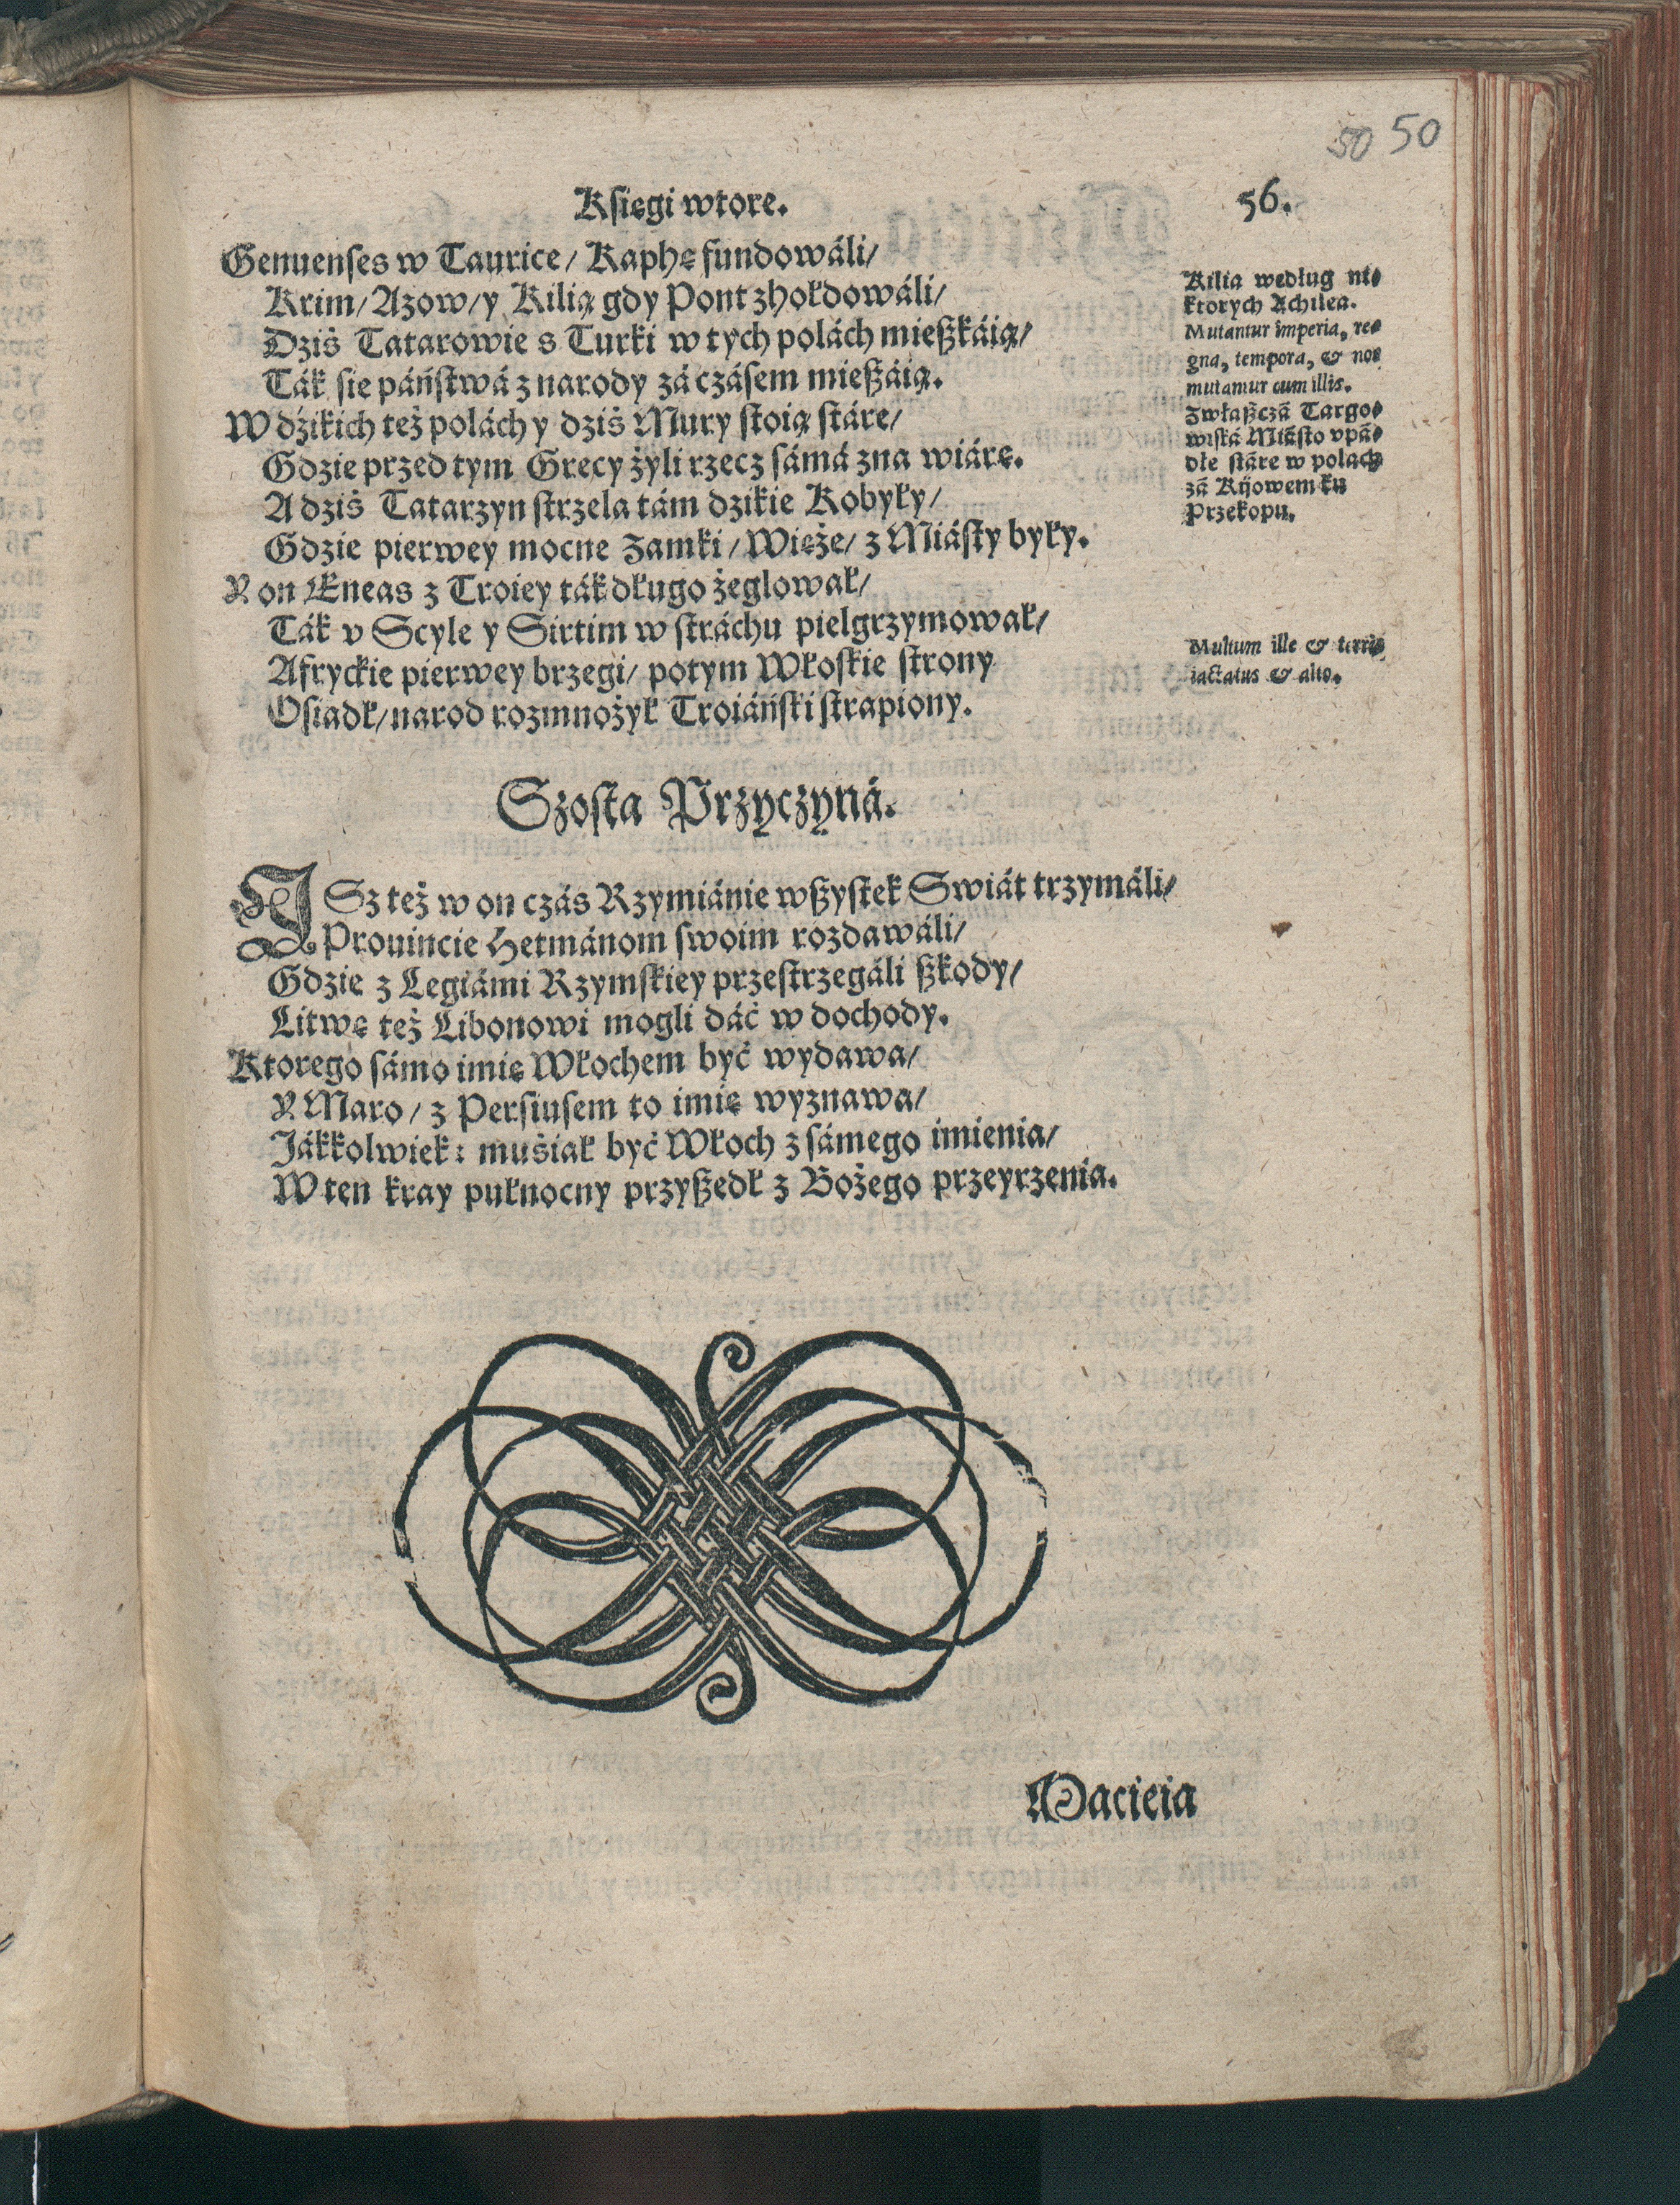 50 50
Księgi wtore.
56.
Genuenses w Taurice/ Kaphę fundowáli/
Krim/ Azow/ y Kilią gdy Pont zhołdowáli/
Dziś Tatarowie s Turki w tych polách mieszkáią/
Ták sie páństwá z narody zá czásem mieszáią.
W dźikich też polách y dziś Mury stoią stáre/
Gdzie przed tym Grecy żyli rzecz sámá zna wiárę.
A dziś Tatarzyn strzela tám dzikie Kobyły/
Gdzie pierwey mocne Zamki/ Wieże/ z Miásty były.
Y on Æneas z Troiey ták długo żeglował/
Ták v Scyle y Sirtim w stráchu pielgrzymował/
Afryckie pierwey brzegi/ potym Włoskie strony
Osiadł/ narod rozmnożył Troiáński strapiony.
Kilia według nie-
ktorych Achilea.
Mutantur imperia, re-
gna, tempora, & nos
mutamur cum illis.
Zwłaszczá Targo-
wiská Miásto vpá-
dłe stáre w polach
zá Kijowem ku
Przekopu.
Multum ille & terris
iactatus & alto.
Szosta Przyczyná.
ISz też w on czás Rzymiánie wszystek Swiát trzymáli/
Prouincie Hetmánom swoim rozdawáli/
Gdzie z Legiámi Rzymskiey przestrzegáli szkody/
Litwę też Libonowi mogli dáć w dochody.
Ktorego sámo imię Włochem być wydawa/
Y Maro/ z Persiusem to imię wyznawa/
Jákkolwiek: muśiał być Włoch z sámego imienia/
W ten kray pułnocny przyszedł z Bożego przeyrzenia.
Macieia